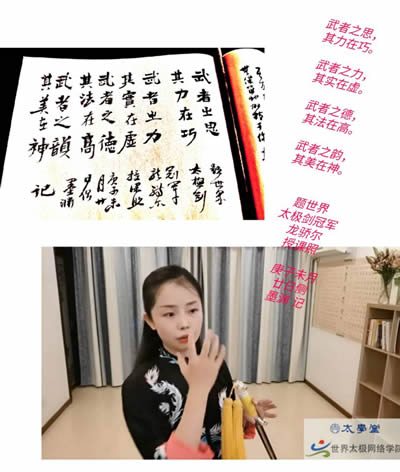 武者之思
其力在巧
武者之力
其實在虛
武者之德
其法在高
武者之韻
其美在神
題世界
太極劍
冠軍
庚子未
月廿
記
武者之思，
其力在巧。
武者之力，
其实在虚。
武者之德，
其法在高。
武者之韵，
其美在神。
题世界
太极剑冠军
龙骄尔
授课照
庚子未月
廿日侧
墨 记
太學堂
世界太极网络学院